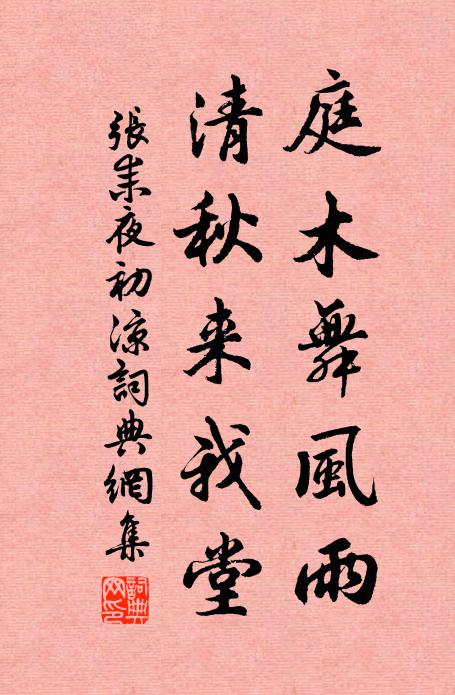 庭木舞風雨
清秋来我堂
張耒夜初涼詞典網集
詞典
网印